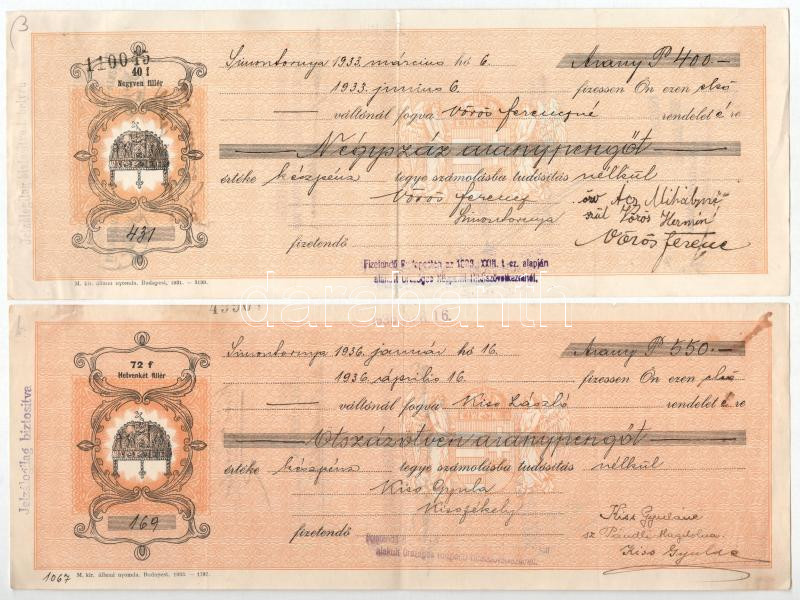 110045
40 f
Negyven fillér
431
Simontornya 1933. március hó 6. Arany P 400.—
1933. junius 6. fizessen Ön ezen első
váltónál fogva Vörös Ferencné rendelet é re
Négyszáz aranypengőt
értéke készpénz tegye számolásba tudósítás nélkül
Vörös Ferenc
Simontornya
özv Acz Mihályné
szül Vörös Hermin
Vörös Ferenc
fizetendő
Fizetendő Budapesten az 1923. XXIII. t.-cz. alapján
alakult Országos Központi Hitelszövetkezetnél.
M. kir. állami nyomda. Budapest, 1931. —
darabanth
72 f
Hetvenkét fillér
Jelzálogilag biztosítva
169
Simontornya 1936. január hó 16. Arany P 550.—
1936. április 16. fizessen Ön ezen első
váltónál fogva Kiss László rendelet é re
Ötszázötven aranypengőt
értéke készpénz tegye számolásba tudósítás nélkül
Kiss Gyula
Kisszékely
Kiss Gyuláné
sz Pándli Magdolna
Kiss Gyula
fizetendő
alakult Országos Központi Hitelszövetkezetnél.
1067
M. kir. állami nyomda. Budapest, 1935. —